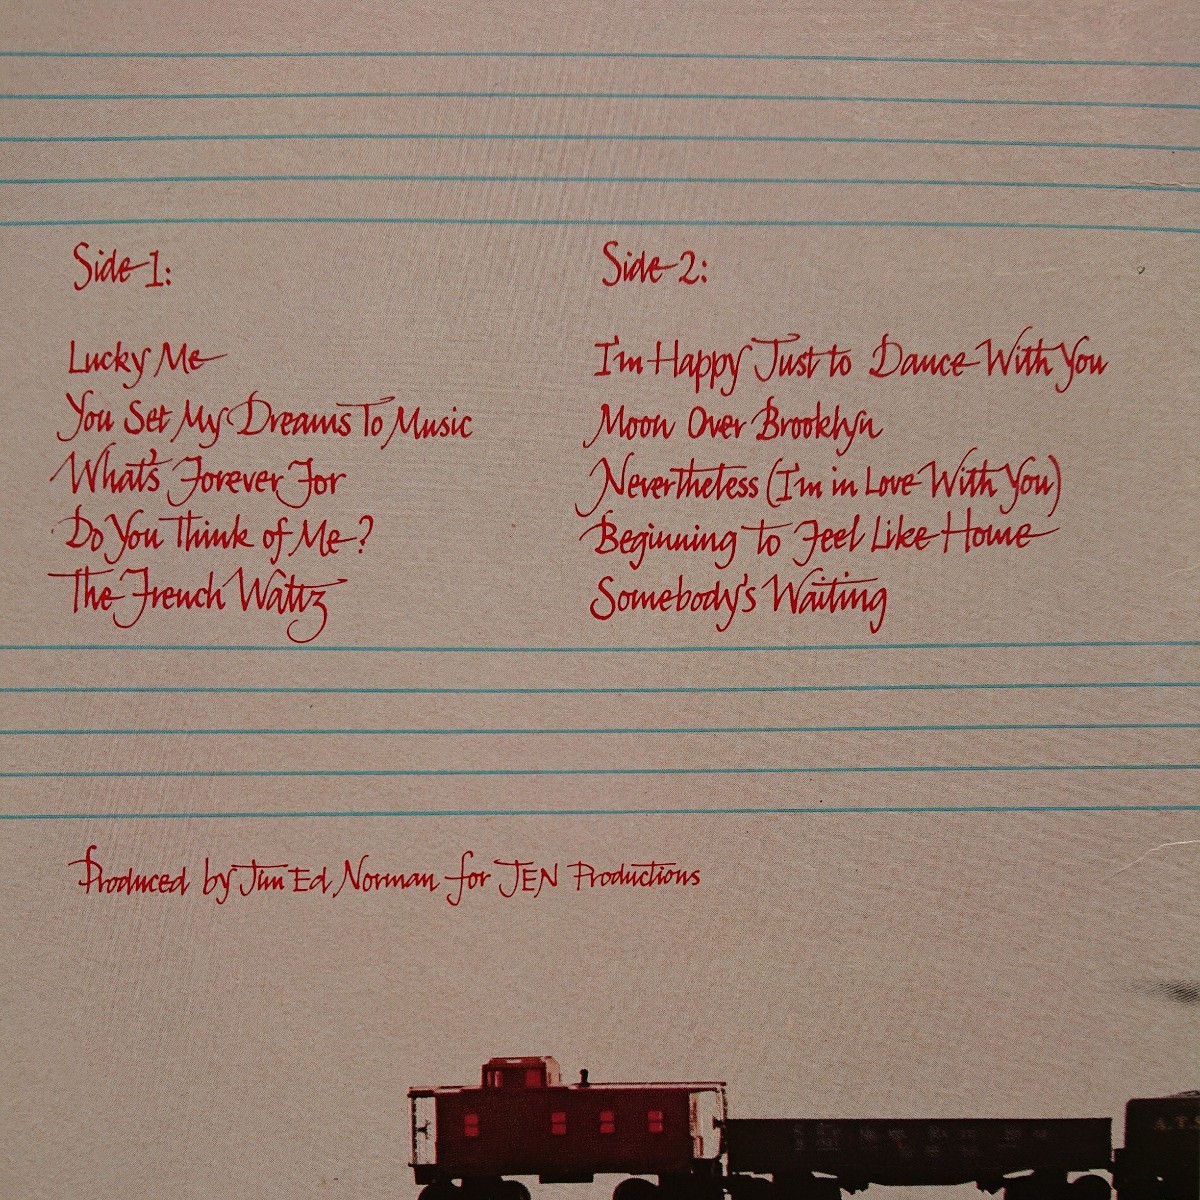 Side 1:
Lucky Me
You Set My Dreams To Music
What's Forever For
Do You Think of Me?
The French Waltz
Side 2:
I'm Happy Just to Dance With You
Moon Over Brooklyn
Nevertheless (I'm in Love With You)
Beginning to Feel Like Home
Somebody's Waiting
Produced by Jim Ed Norman for JEN Productions
A.T.S